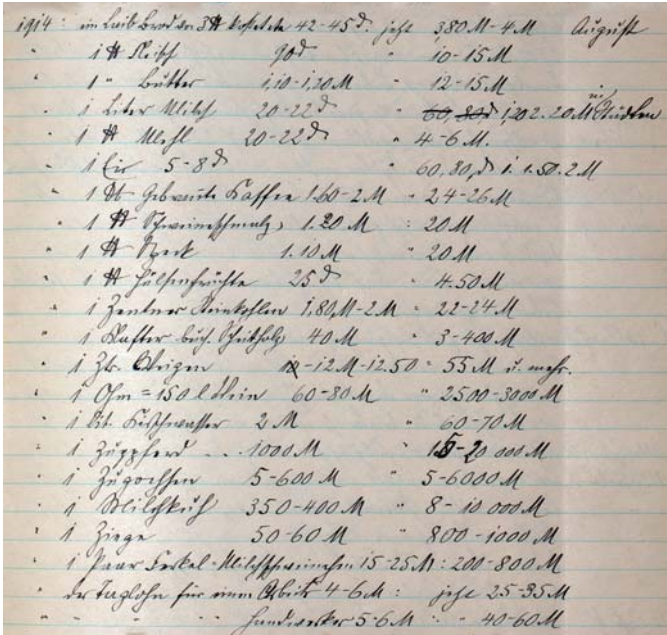 1914 : ein Laib Brod von 3 ℔ kostete 42-45 ₰. jetzt 3,80 M - 4 M August
" 1 ℔ Fleisch 90 ₰ " 10-15 M
" 1 " Butter 1,10-1,20 M " 12-15 M
" 1 Liter Milch 20-22 ₰ " 60, 80 ₰ 1,20 2.20 M in Städten
" 1 ℔ Mehl 20-22 ₰ " 4-6 M.
" 1 Ei 5-8 ₰ " 60, 80, ₰ 1. 1.50. 2 M
" 1 ℔ Gebrannte Kaffee 1.60-2 M " 24-26 M
" 1 ℔ Schweineschmalz, 1.20 M : 20 M
" 1 ℔ Speck 1.10 M " 20 M
" 1 ℔ Hülsenfrüchte 25 ₰ " 4.50 M
" 1 Zentner Steinkohlen 1,80 M-2 M " 22-24 M
" 1 Klafter buch. Scheitholz 40 M " 3-400 M
" 1 Ztr. Weizen 12 M-12.50 " 55 M u. mehr.
" 1 Ohm = 150 l Wein 60-80 M " 2500-3000 M
" 1 Lit. Kirschwasser 2 M " 60-70 M
" 1 Zugpferd .. 1000 M " 15-20 000 M
" 1 Zugochsen 5-600 M " 5-6000 M
" 1 Milchkuh 350-400 M " 8-10 000 M
" 1 Ziege 50-60 M " 800-1000 M
" 1 Paar Ferkel-Milchschweinchen 15-25 M : 200-800 M
" der Taglohn für einen Arbeiter 4-6 M : jetzt 25-35 M
" " " " Handwerker 5-6 M " " 40-60 M